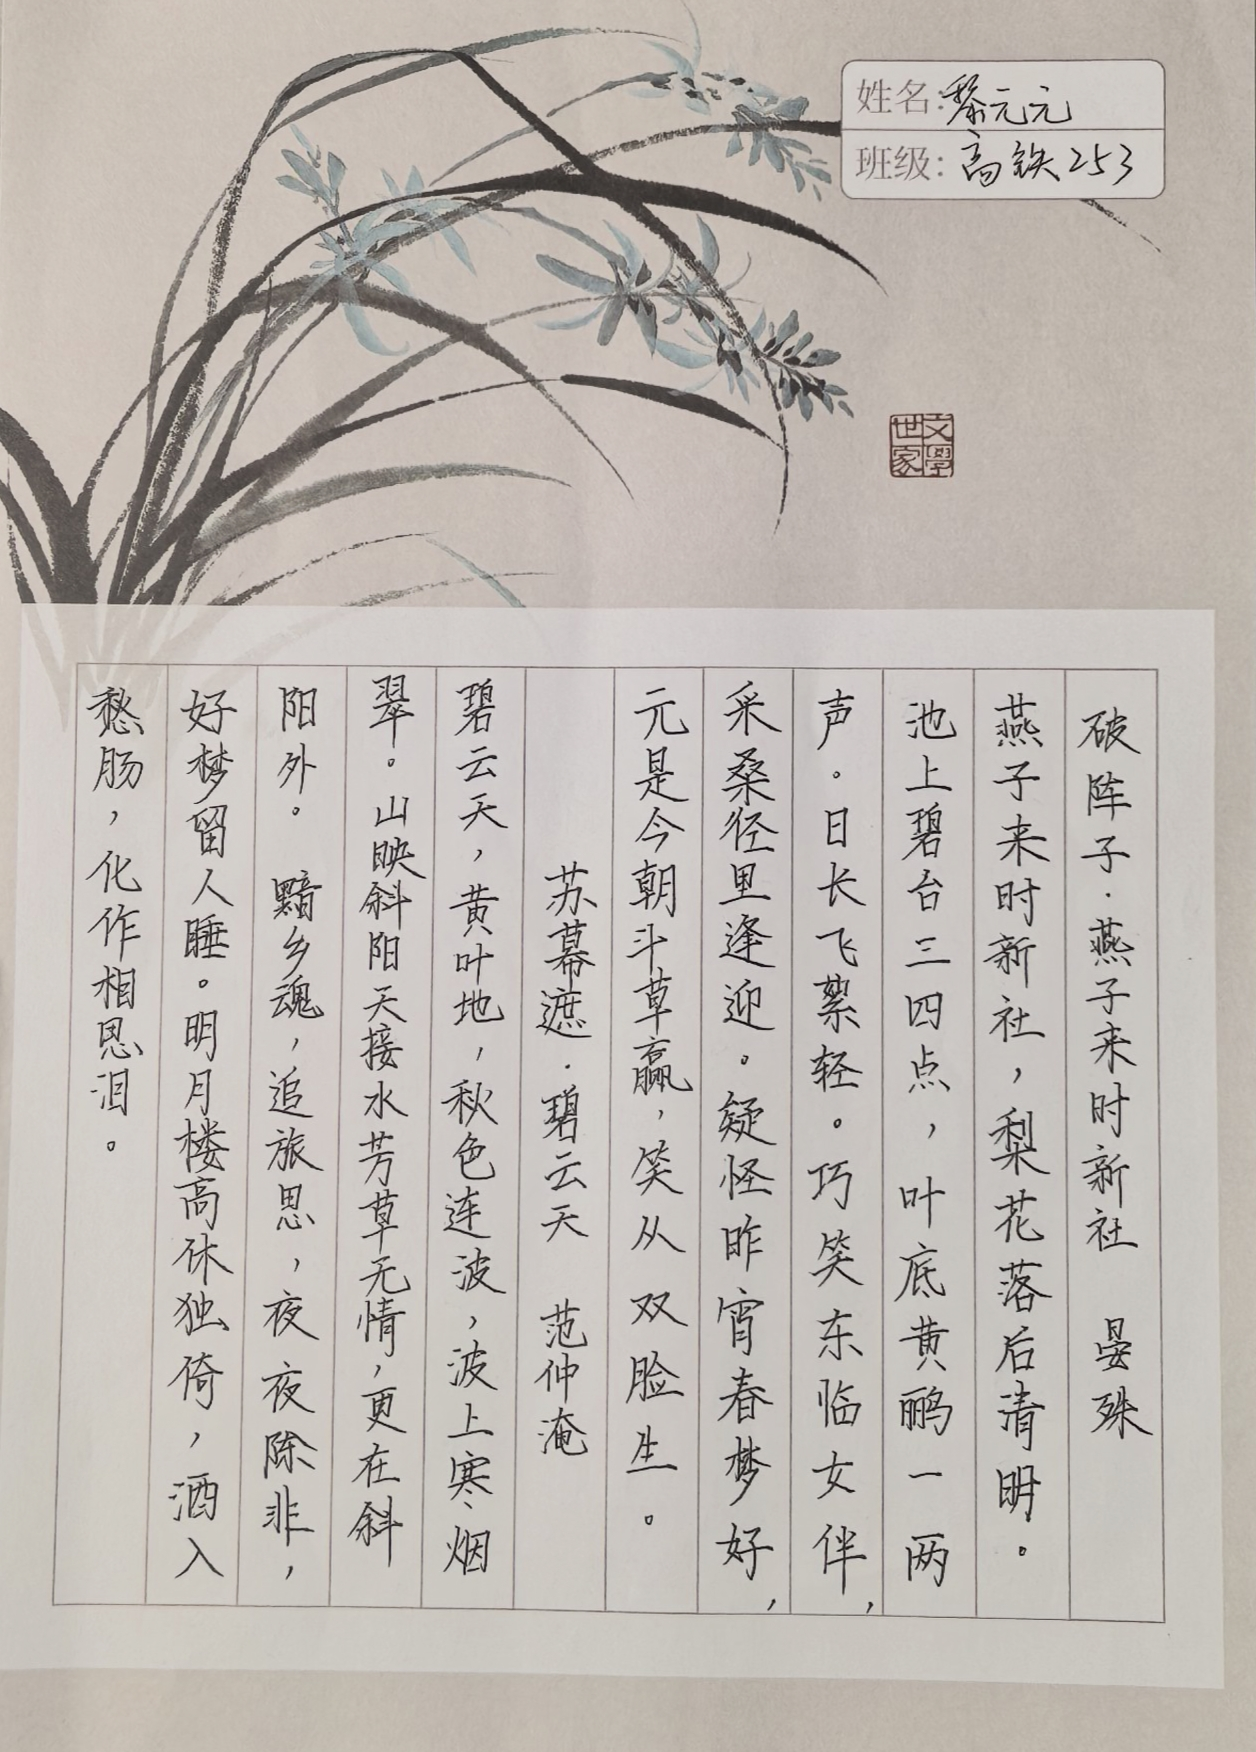 姓名：黎元元
班级：高铁253
文学世家
破阵子·燕子来时新社 晏殊
燕子来时新社，梨花落后清明。
池上碧台三四点，叶底黄鹂一两
声。日长飞絮轻。巧笑东临女伴，
采桑径里逢迎。疑怪昨宵春梦好，
元是今朝斗草赢，笑从双脸生。
苏幕遮·碧云天 范仲淹
碧云天，黄叶地，秋色连波，波上寒烟
翠。山映斜阳天接水芳草无情，更在斜
阳外。 黯乡魂，追旅思，夜夜除非，
好梦留人睡。明月楼高休独倚，酒入
愁肠，化作相思泪。